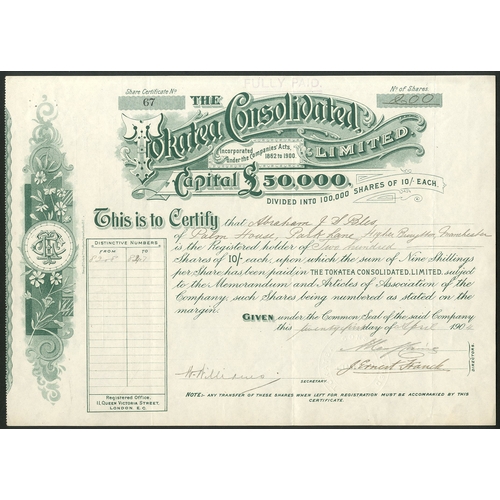 FULLY PAID.
Share Certificate No
67
No of Shares
200
THE
Tokatea Consolidated,
LIMITED.
Incorporated under the Companies' Acts, 1862 to 1900.
Capital £50,000,
DIVIDED INTO 100,000 SHARES OF 10/- EACH.
This is to Certify that Abraham J S Bles
of Palm House, Park Lane, Higher Broughton, Manchester
is the Registered holder of Two hundred
Shares of 10/- each, upon which the sum of Nine Shillings
per Share has been paid in THE TOKATEA CONSOLIDATED, LIMITED, subject
to the Memorandum and Articles of Association of the
Company, such Shares being numbered as stated on the
margin.
GIVEN, under the Common Seal of the said Company
this twenty first day of April 190
DISTINCTIVE NUMBERS
FROM TO
J. Ernest Franck
DIRECTORS.
W. Williams
SECRETARY.
Registered Office:
11, QUEEN VICTORIA STREET,
LONDON, E.C.
NOTE:- ANY TRANSFER OF THESE SHARES WHEN LEFT FOR REGISTRATION MUST BE ACCOMPANIED BY THIS
CERTIFICATE.